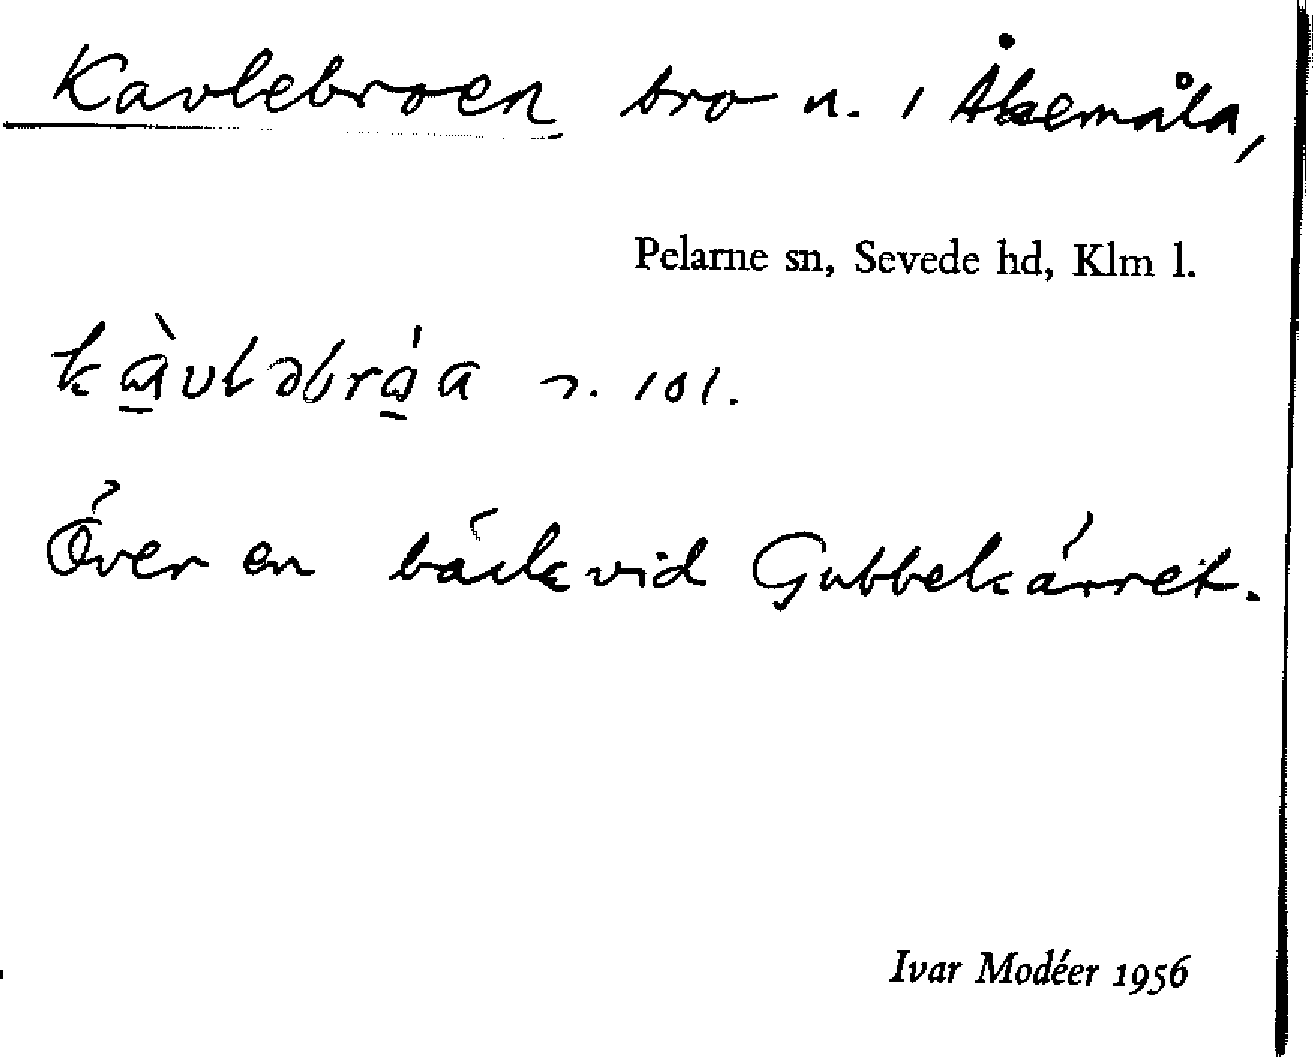 Kavlebroen bro n. i Åkemåla,
Pelarne sn, Sevede hd, Klm l.
n. 101.
Över en bäck vid Gubbekärret.
Ivar Modéer 1956